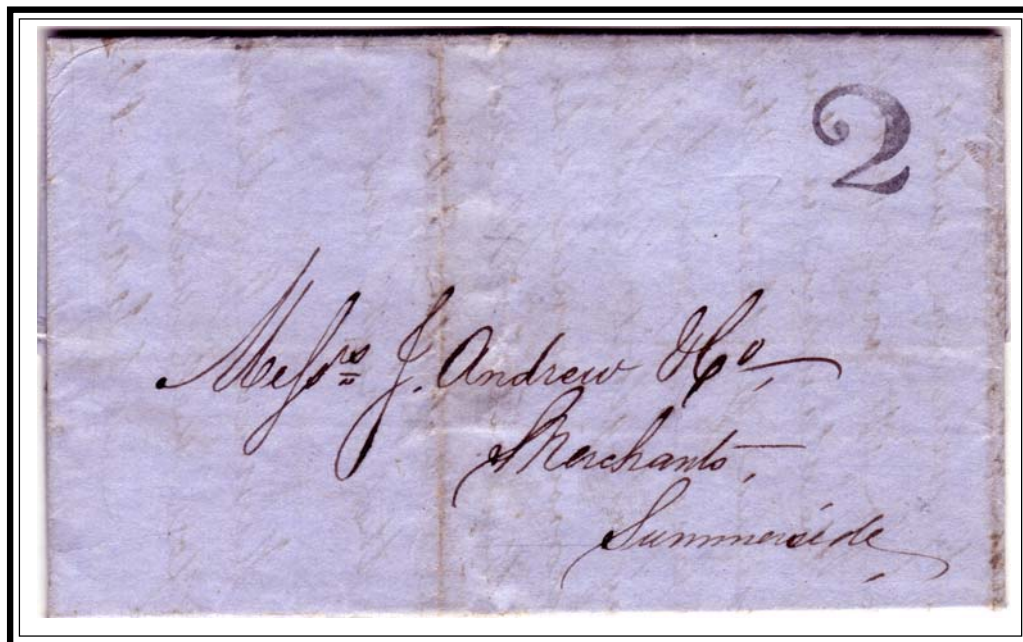 2
Messrs J. Andrew & Co.
Merchants,
Summerside